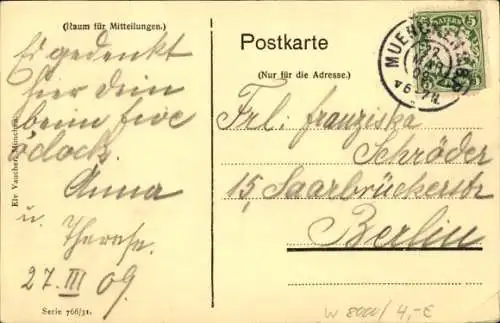 (Raum für Mitteilungen.)
Es gedenkt
hier dein
beim five
o'clock.
Anna
u. Therese.
27. III 09.
Serie 766/31.
Elv Vaucher, München.
Postkarte
(Nur für die Adresse.)
BAYERN
5
MUENCHEN
Frl: franziska
Schröder
15, Saarbrückerstr
Berlin
W 8000/ 4,-€